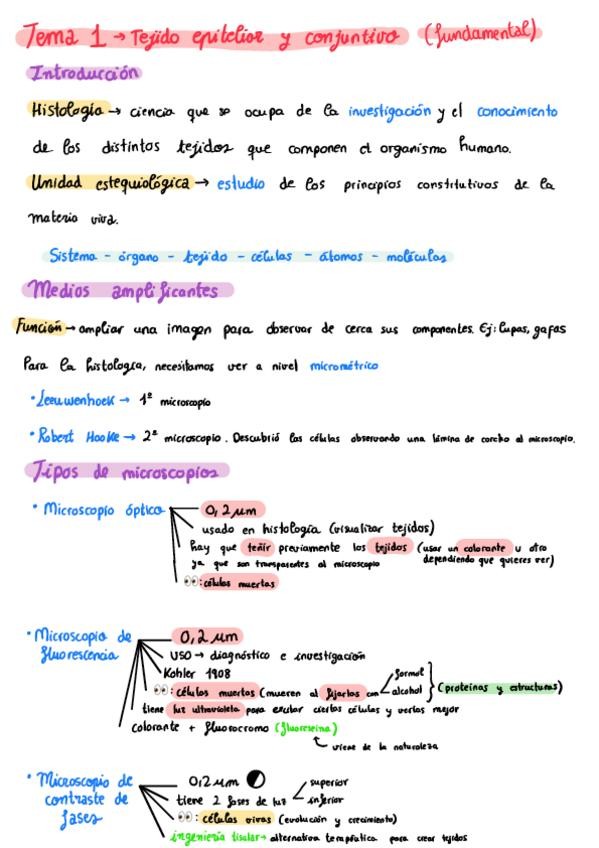 Tema 1 → Tejido epitelior y conjuntivo (fundamental)
Introducción
Histología → ciencia que se ocupa de la investigación y el conocimiento
de los distintos tejidos que componen el organismo humano.
Unidad estequiológica → estudio de los principios constitutivos de la
materia viva.
Sistema - órgano - tejido - células - átomos - moléculas
Medios amplificantes
Función → ampliar una imagen para observar de cerca sus componentes. Ej: lupas, gafas
Para la histología, necesitamos ver a nivel micrométrico
• Leeuwenhoek → 1º microscopio
• Robert Hooke → 2º microscopio. Descubrió las células observando una lámina de corcho al microscopio.
Tipos de microscopios
• Microscopio óptico
0,2 µm
usado en histología (visualizar tejidos)
hay que teñir previamente los tejidos (usar un colorante u otro
ya que son transparentes al microscopio dependiendo que quieres ver)
👀: células muertas
• Microscopio de fluorescencia
0,2 µm
USO → diagnóstico e investigación
Kohler 1908
👀: células muertas (mueren al fijarlas con formol alcohol (proteínas y estructuras)
tiene luz ultravioleta para excitar ciertas células y verlas mejor
Colorante + fluorocromo (fluoreseína)
viene de la naturaleza
• Microscopio de contraste de fases
0,2 µm
tiene 2 fases de luz superior inferior
👀: células vivas (evolución y crecimiento)
ingeniería tisular → alternativa terapéutica para crear tejidos